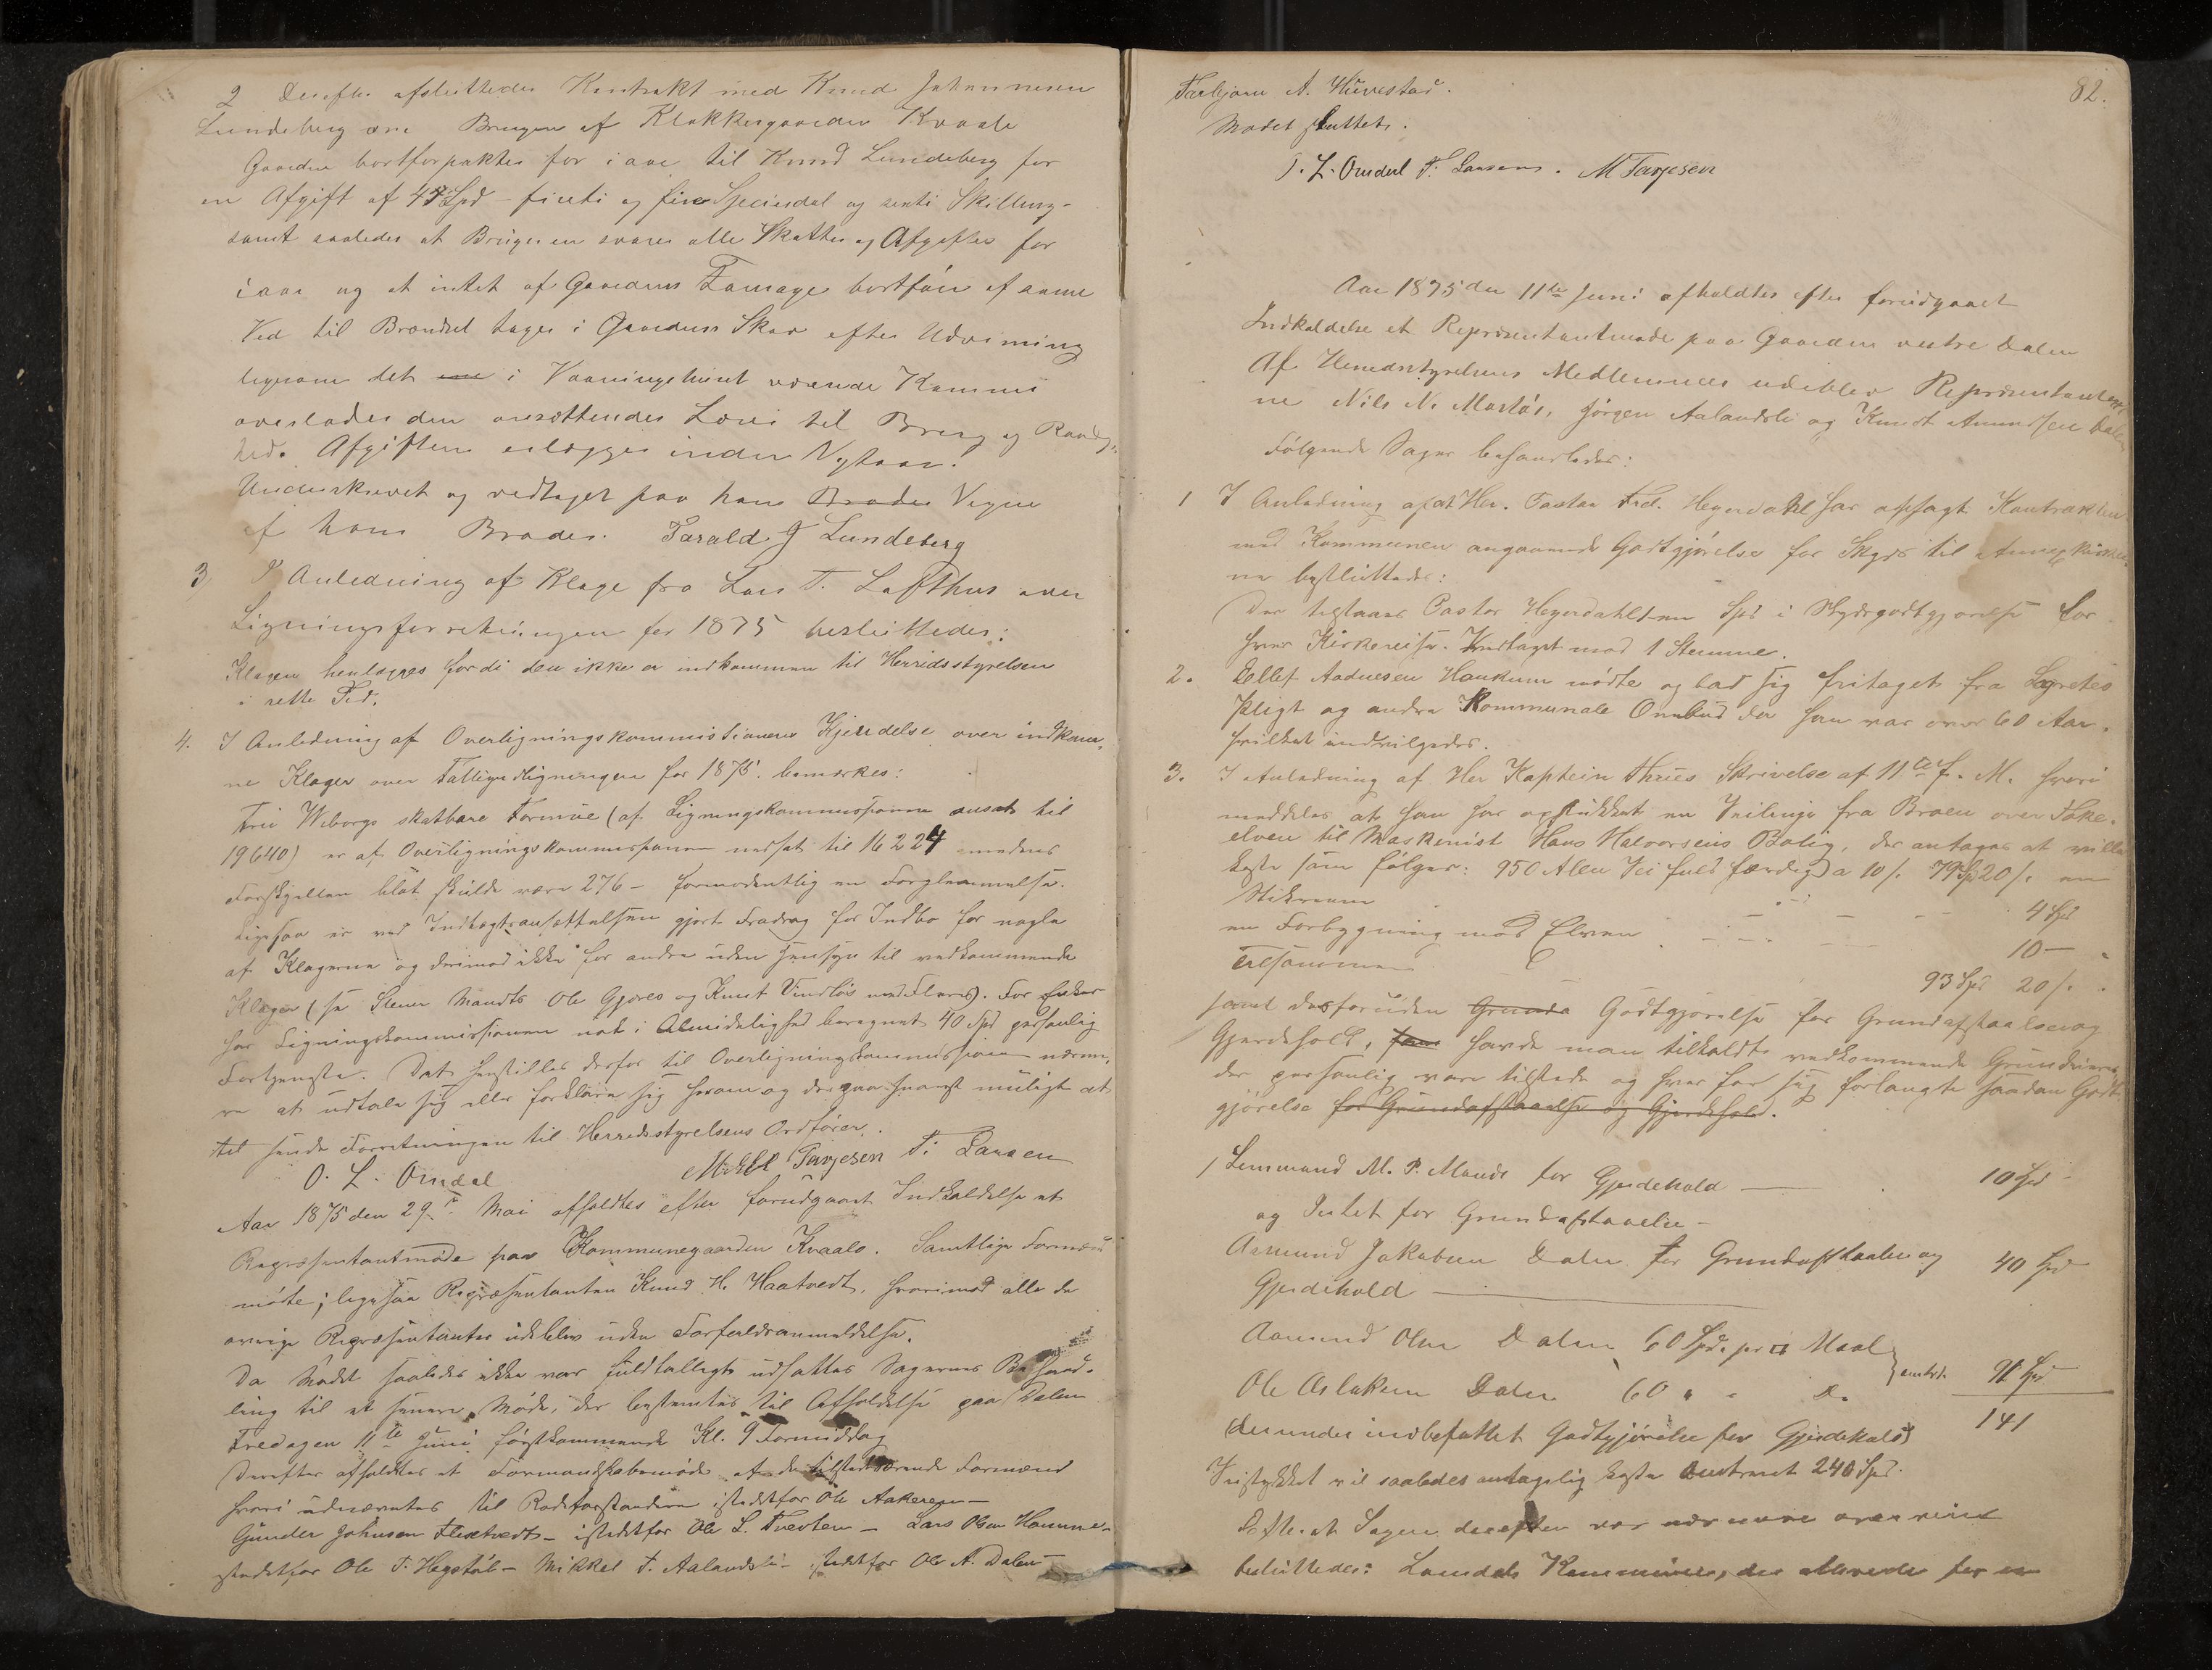 2 Derefter afsluttedes Kontrakt med Knud Johannesen
Lundeberg om Brugen af Klokkergaarden Kvaale
Gaarden bortforpaktes for iaar til Knud Lundeberg for
en Afgift af Spd firti og fire Speciedal og Skilling
samt saaledes at Brugeren svarer alle Skatter og Afgifter for
iaar og at intet af Gaardens Fourage bortføres af samme
Ved til Brændsel tages i Gaardens Skov efter Udvisning
ligesom det i Vaaningshuset værende Kammer
overlades den ansættendes Lærer til Brug og Raadig-
hed. Afgiften erlægges inden Nytaar.
Underskrevet og vedtaget paa hans Broder Vegne
af hans Broder. Tarald J Lundeberg
3 I Anledning af Klage fra Lars T. Lofthus over
Ligningsforretningen for 1875 besluttedes:
Klagen henlægges fordi den ikke er indkommen til Herredsstyrelsen
i rette Tid.
4. I Anledning af Overligningskommissionens Kjendelse over indkom-
ne Klager over Fattigudligningen for 1875. bemærkes:
Fru Wiborgs skatbare Formue (af Ligningskommissionen ansat til
19640) er af Overligningskommissionen nedsat til 16224 medens
Forskjellen blot skulde være 276 - formodentlig en Forglemmelse.
Ligesaa er ved Indtægtsansættelsen gjort Fradrag for Indbo for nogle
af Klagerne og derimod ikke for andre uden Hensyn til vedkommende
Klager (se Stener Mandts Ole Gjøres og Knut Vindløs med Fleres). For
har Ligningskommissionen nok i Almindelighed beregnet 40 Spd personlig
Fortjeneste. Det henstilles derfor til Overligningskommissionen nærme-
re at udtale sig eller forklare sig herom og derpaa snarest muligt at
tilsende Forretningen til Herredsstyrelsens Ordfører.
O. L. Omdal Mikkel Tarjesen T. Larsen
Aar 1875 den 29de Mai afholdtes efter forudgaaet Indkaldelse et
Repræsentantmøde paa Kommunegaarden Kvaale. Samtlige Formænd
mødte; ligesaa Repræsentanten Knud H. Haatvedt, hvorimod alle de
øvrige Repræsentanter udeblev uden Forfaldsanmeldelse.
Da Mødet saaledes ikke var fuldtalligt udsattes Sagernes Behand-
ling til et senere Møde, der bestemtes til Afholdelse paa Dalen
Fredagen 11te Juni førstkommende Kl. 9 Formiddag
Derefter afholdtes et Formandskabsmøde af de tilstedeværende Formænd
hvori udnævntes til Rodeforstandere istedetfor Ole Aakeren -
Gunder Johnsen Flextvedt - istedetfor Ole L. Tveten - Lars Olsen Homme -
istedetfor Ole T. Hegstøl - Mikkel T. Aalandsli - istedetfor Ole A. Dalen -
82.
Torbjørn A. Huvestad.
Mødet sluttet.
O. L. Omdal T. Larsens. M Tarjesen
Aar 1875 den 11te Juni afholdtes efter forudgaaet
Indkaldelse et Repræsentantmøde paa Gaarden vestre Dalen
Af Herredsstyrelsens Medlemmer udeblev Repræsentanter-
ne Nils N. Mastøs, Jørgen Aalandsli og Knut Amundsen Dalen
Følgende Sager behandledes:
1 I Anledning af at Hr. Pastor Fred. Heyerdahl har opsagt Kontrakten
med Kommunen angaaende Godtgjørelse for Skyds til Annexkirker-
ne besluttedes:
Der tilstaaes Pastor Heyerdahl en Spd i Skydsgodtgjørelse for
hver Kirkereise. Vedtaget mod 1 Stemme.
2. Tellef Aadnesen Haukum mødte og bad sig fritaget fra Lagrettes
pligt og andre Kommunale Ombud da han var over 60 Aar.
hvilket indvilgedes.
3. I Anledning af Hr Kaptein Thues Skrivelse af 11te f. M. hvori
meddeles at han har opstukket en Veilinje fra Broen over Toke-
elven til Maskinist Hans Halvorsens Bolig, der antages at ville
koste som følger: 950 Alen Vei fuldfærdig a 10 s. 79 Spd 20 s. en
Stikrenne 4 Spd
en Forbygning mod Elven 10 -
Tilsammen 93 Spd 20 s.
samt desforuden Grunda Godtgjørelse for Grundafstaaelse og
Gjerdehold, havde man tilkaldt vedkommende Grundeiere,
der personlig vare tilstede og hver for sig forlangte saadan Godt-
gjørelse for Grundafstaaelse og Gjerdehold.
1 Lensmand M. P. Mandt for Gjerdehold 10 Spd
og Intet for Grundafstaaelse -
Aamund Jakobsen Dalen for Grundafstaaelse og
Gjerdehold 40 Spd
Aamund Olsen Dalen 60 Spd. pr Maal
Ole Aslaksen Dalen 60 " - Do omtrt. 91 Spd
(derunder indbefattet Godtgjørelse for Gjerdehold) 141
Veistykket vil saaledes antagelig koste omtrent 240 Spd.
Efter at Sagen derefter var nærmere overveiet
besluttedes: Laurdals Kommune, der allerede for en